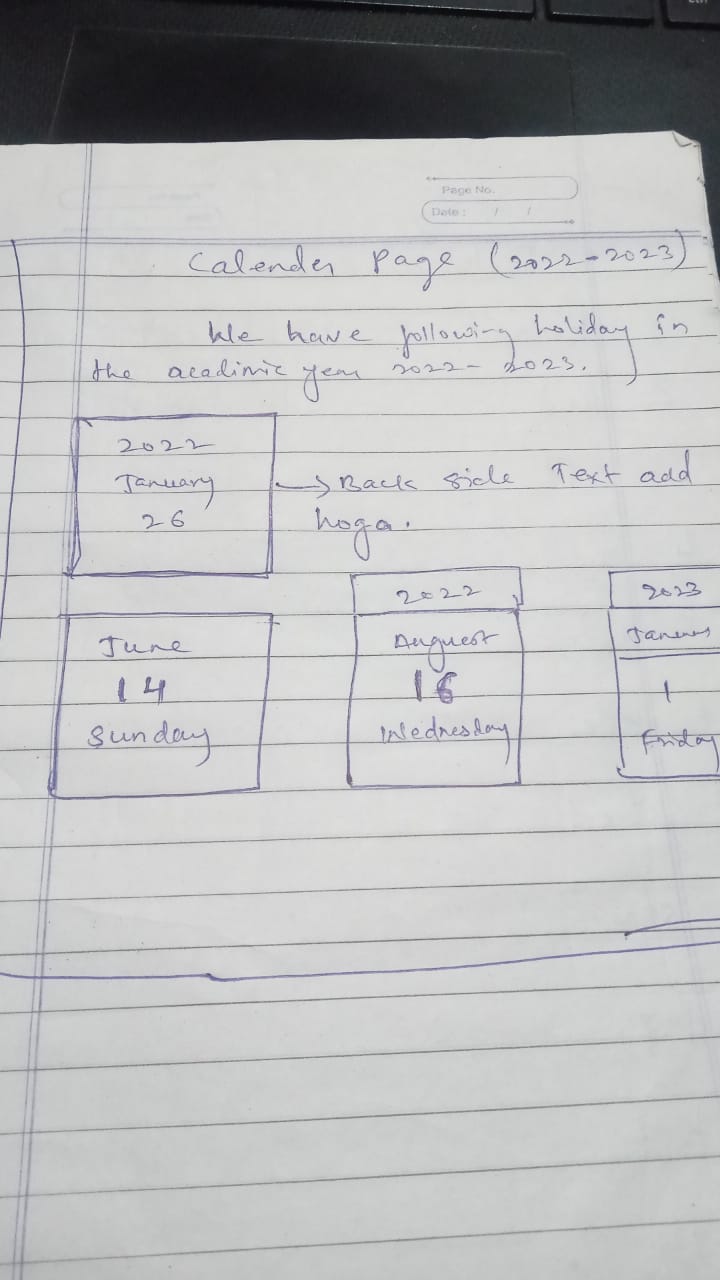 Page No.
Date: / /
Calender Page (2022-2023)
We have following holiday in
the acadimic year 2022-2023.
2022
January
26
→ Back side Text add
hoga.
2022
2023
June
14
Sunday
Auguest
16
Wednesday
1
Friday